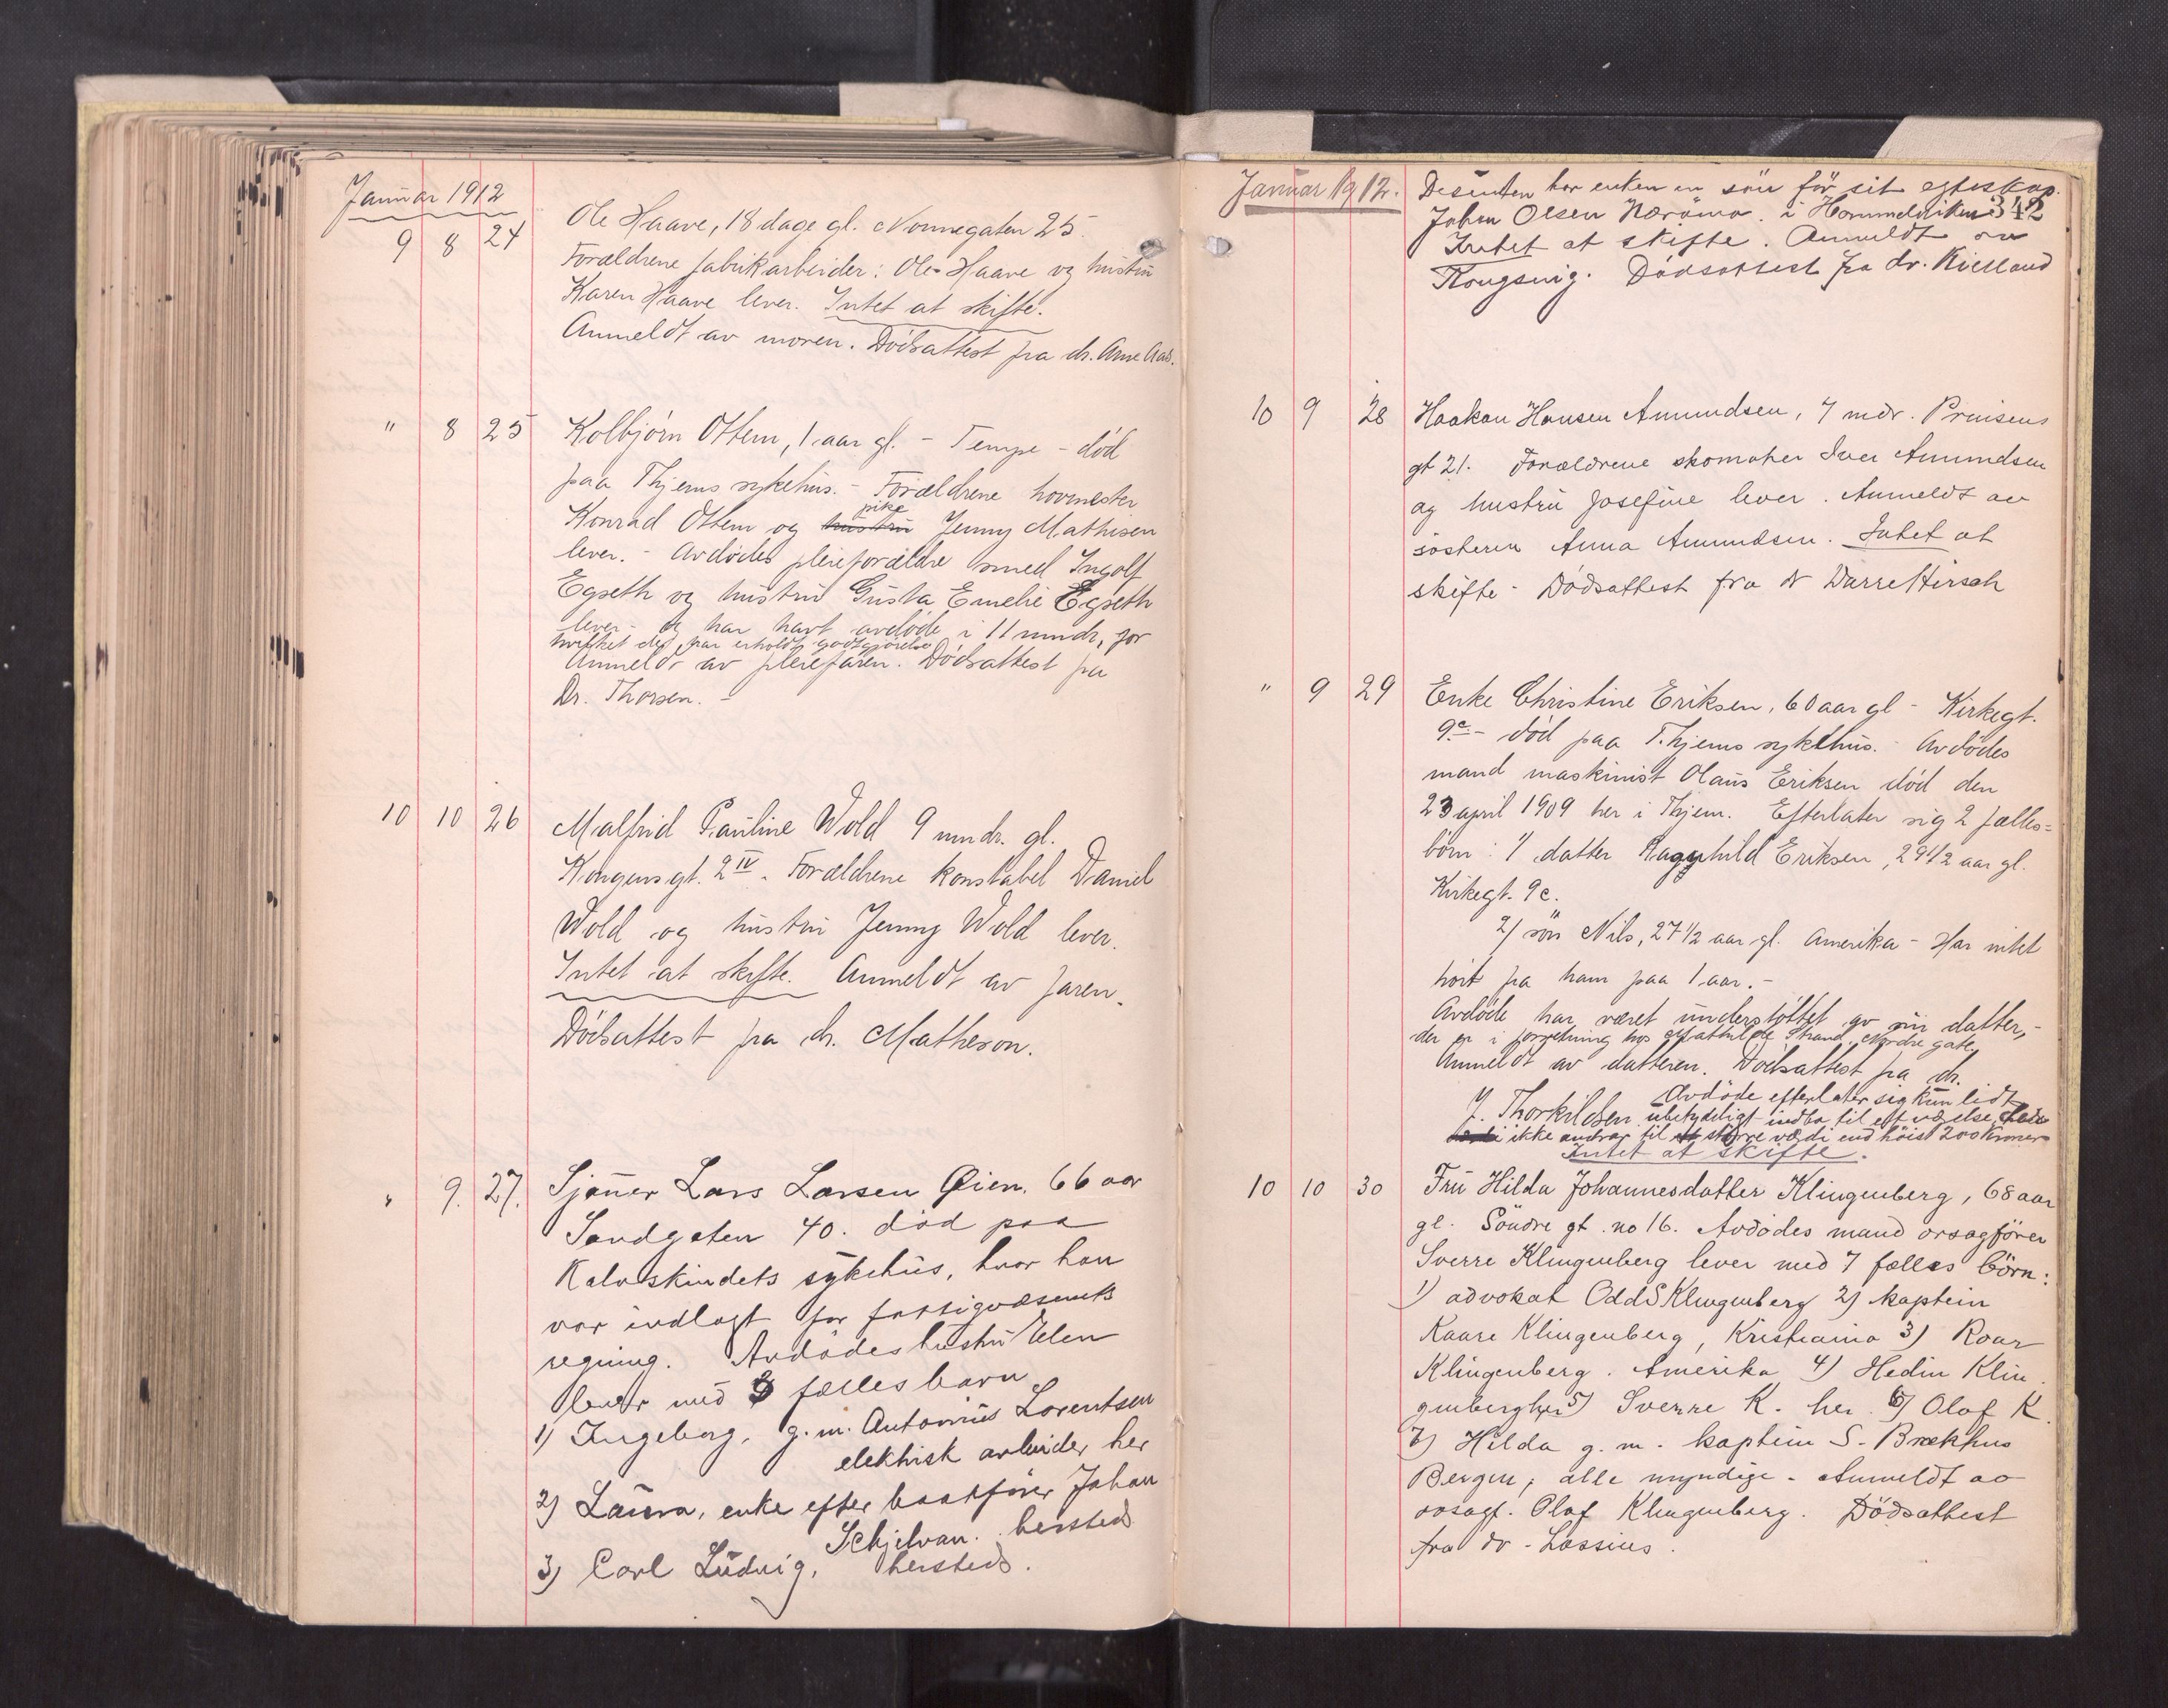 Januar 1912
9 8 24 Ole Haave, 18 dage gl. Nonnegaten 25.
Forældrene fabrikarbeider: Ole Haave og hustru
Karen Haave lever. Intet at skifte.
Anmeldt av moren. Dödsattest fra dr. Arne Aas.
" 8 25 Kolbjörn Ottem, 1 aar gl. - Tempe - död
paa Thjems sykehus. - Forældrene hovmester
Konrad Ottem og hustru pike Jenny Mathisen
lever. - Avdödes pleieforældre smed Ingolf
Egseth og hustru Gusta Emelie Egseth
lever - og har havt avdöde i 11 mndr, for
hvilket de har erholdt godtgjörelse
Anmeldt av pleiefaren. Dödsattest fra
Dr. Thorsen. -
10 10 26 Malfrid Pauline Wold 9 mndr. gl.
Kongensgt. 2 IV. Forældrene konstabel Daniel
Wold og hustru Jenny Wold lever.
Intet at skifte. Anmeldt av faren.
Dödsattest fra dr. Matheson.
" 9. 27. Sjauer Lars Larsen Øien, 66 aar
Sandgaten 40. död paa
Kalvskindets sykehus, hvor han
var indlagt for fattigvæsenets
regning. Avdödes hustru Elen
lever med 3 fælles barn
1) Ingeborg, g.m. Antonius Lorentsen
elektrisk arbeider her
2) Laura, enke efter baatförer Johan
Schjelvan. hersteds
3) Carl Ludvig, hersteds.
Januar 1912.
Desuten har enken en sön för sit egteskap.
Johan Olsen i Hommelviken 342
Intet at skifte. Anmeldt av
Kongsvig. Dödsattest fra dr. Kielland
10 9 28 Haakon Hansen Amundsen, 7 mdr. Prinsens
gt 21. Forældrene skomaker Iver Amundsen
og hustru Josefine lever. Anmeldt av
sösteren Anna Amundsen. Intet at
skifte - Dödsattest fra dr Darre Hirsch
" 9 29 Enke Christine Eriksen, 60 aar gl - Kirkegt.
9c. - död paa T.hjems sykehus. - Avdödes
mand maskinist Olaus Eriksen död den
23 april 1909 her i Thjem. Efterlater sig 2 fælles=
börn: 1/ datter Ragnhild Eriksen, 29 1/2 aar gl.
Kirkegt. 9c.
2/ sön Nils, 27 1/2 aar gl. Amerika - Har intet
hört fra ham paa 1 aar. -
Avdöde har været understöttet av sin datter, -
der er i forretning hos Mathilde Strand, Nordre gate.
Anmeldt av datteren. Dödsattest fra dr.
J. Thorkildsen. Avdöde efterlater sig kun lidt
ubetydeligt indbo til ett værelse,
ikke andrar til större værdi end höist 200 kroner
Intet at skifte.
10 10 30 Fru Hilda Johannesdatter Klingenberg, 68 aar
gl. Söndre gt. no 16. Avdödes mand orsagförer
Sverre Klingenberg lever med 7 fælles börn:
1) advokat Odd S Klingenberg 2) kaptein
Kaare Klingenberg, Kristiania 3) Roar
Klingenberg. Amerika 4) Hedin Klin
genberg her 5) Sverre K. her. 6) Olaf K.
7) Hilda g. m. kaptein S. Brækhus
Bergen; alle myndige - Anmeldt av
orsagf. Olaf Klingenberg. Dödsattest
fra dr - Lossius.